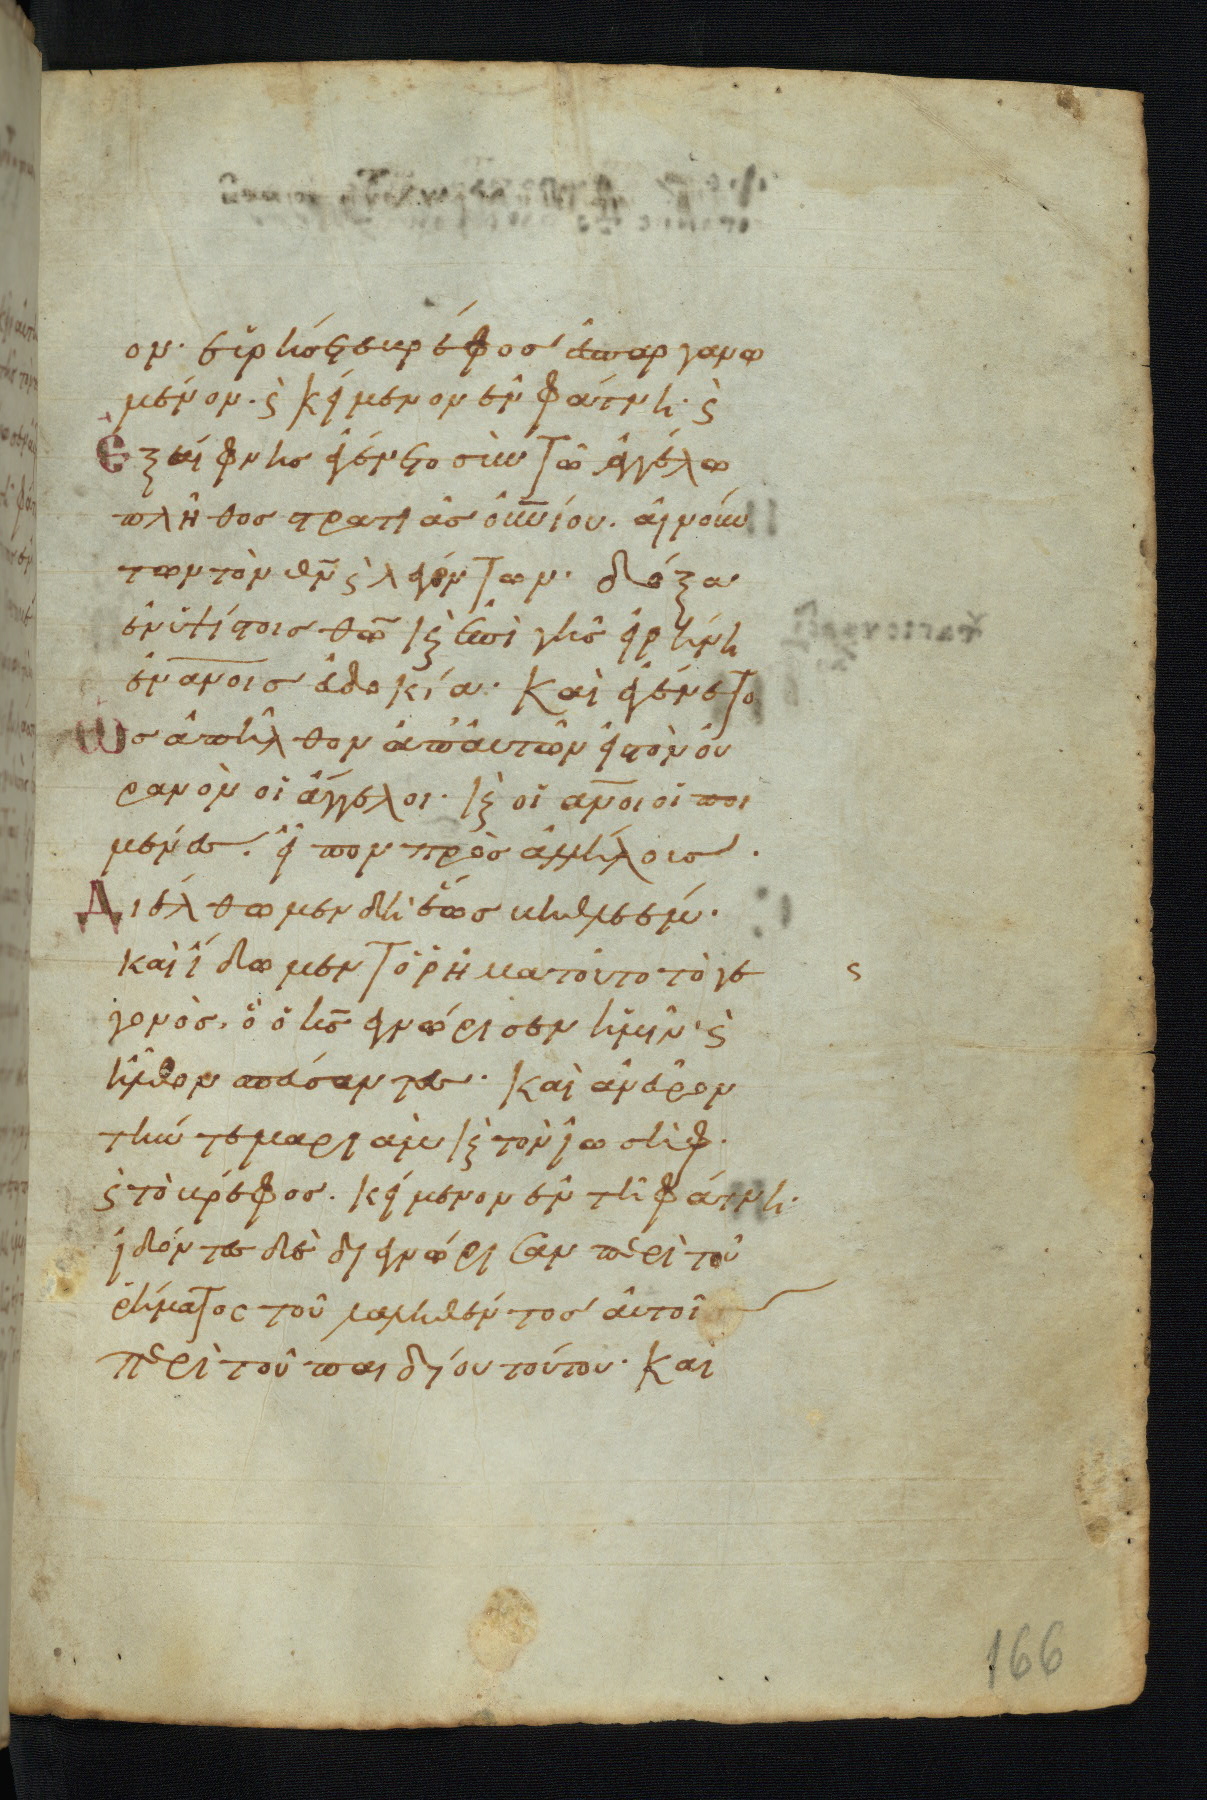 ον· εὑρήσετε βρέφος ἐσπαργανω
μένον· ϛ κείμενον ἐν φάτνη· ϛ
Ἐξαίφνης ἐγένετο σὺν τῶ ἀγγέλω
πλῆθος στρατιᾶς οὐνίου· αἰνούν
των τὸν θν̄ ϛ λεγόντων· δόξα
ἐν ὑψίστοις θω̄ κ(αὶ) ἐπὶ γῆς εἰρήνη
ἐν ανοις εὐδοκία· Καὶ ἐγένετο
ὡς ἀπῆλθον ἀπ' αὐτῶν εἰς τὸν οὐ
ρανὸν οἱ ἄγγελοι· κ(αὶ) οἱ ανοι οἱ ποι
μένες· εἶπον πρὸς ἀλλήλοις·
Διέλθωμεν δὴ ἕως βηθλεέμ·
καὶ ἴδωμεν τὸ ῥῆμα τοῦτο τὸ γε
γονὸς· ὃ ὁ κς̄ ἐγνώρισεν ἡμῖν· ϛ
ἦλθον σπεύσαντες· Καὶ ἀνεῦρον
τήν τε μαριὰμ κ(αὶ) τὸν ἰωσὴφ·
ϛ τὸ βρέφος· κείμενον ἐν τῆ φάτνη·
ἰδόντες δὲ διεγνώρισαν περὶ τοῦ
ῥήματος τοῦ λαληθέντος αὐτοῖς
περὶ τοῦ παιδίου τούτου· Καὶ
166